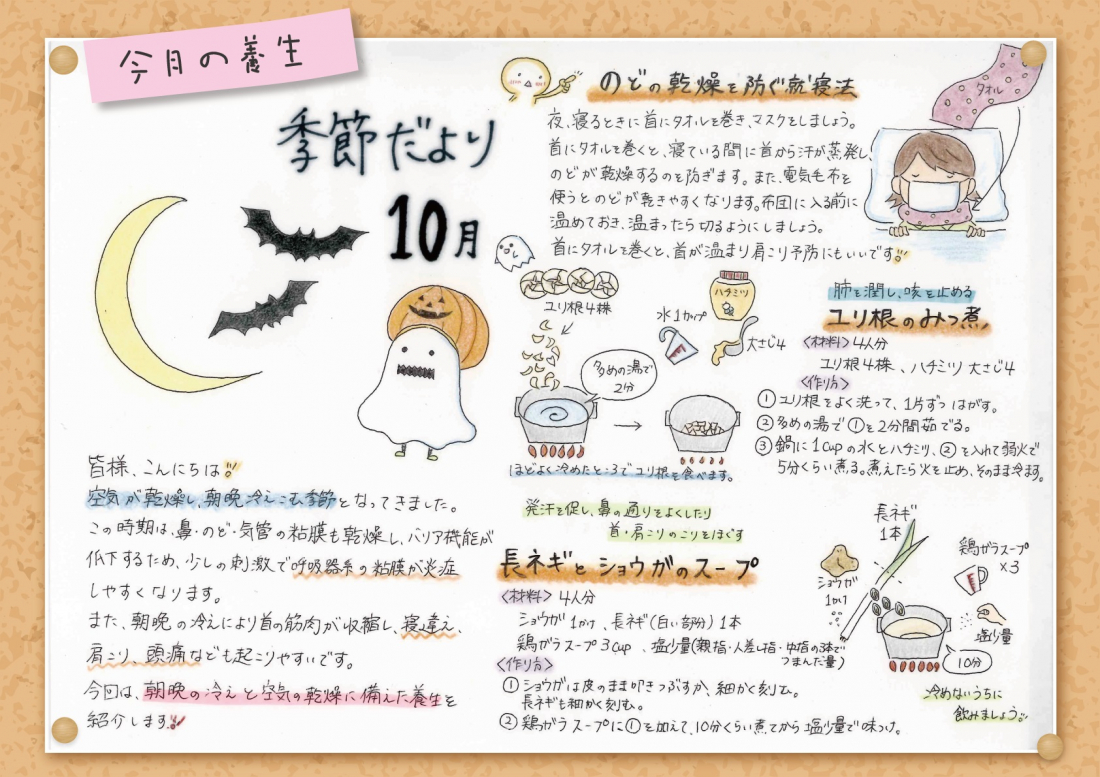 今月の養生
季節だより
10月
皆様、こんにちは!!
空気が乾燥し、朝晩冷えこむ季節となってきました。
この時期は、鼻・のど・気管の粘膜も乾燥し、バリア機能が
低下するため、少しの刺激で呼吸器系の粘膜が炎症
しやすくなります。
また、朝晩の冷えにより首の筋肉が収縮し、寝違え、
肩こり、頭痛なども起こりやすいです。
今回は、朝晩の冷えと空気の乾燥に備えた養生を
紹介します!!
のどの乾燥を防ぐ就寝法
夜、寝るときに首にタオルを巻き、マスクをしましょう。
首にタオルを巻くと、寝ている間に首から汗が蒸発し、
のどが乾燥するのを防ぎます。また、電気毛布を
使うとのどが乾きやすくなります。布団に入る前に
温めておき、温まったら切るようにしましょう。
首にタオルを巻くと、首が温まり肩こり予防にもいいです!!
タオル
肺を潤し、咳を止める
ユリ根のみつ煮
〈材料〉4人分
ユリ根4株、ハチミツ 大さじ4
〈作り方〉
①ユリ根をよく洗って、1片ずつはがす。
②多めの湯で①を2分間茹でる。
③鍋に1cupの水とハチミツ、②を入れて弱火で
5分くらい煮る。煮えたら火を止め、そのまま冷ます。
ユリ根4株
多めの湯で
2分
水1カップ
ハチミツ
大さじ4
ほどよく冷めたところでユリ根を食べます。
発汗を促し、鼻の通りをよくしたり
首・肩こりのこりをほぐす
長ネギとショウガのスープ
〈材料〉4人分
ショウガ1かけ、長ネギ(白い部分)1本
鶏ガラスープ3cup、塩少量(親指・人差し指・中指の3本で
つまんだ量)
〈作り方〉
①ショウガは皮のまま叩きつぶすか、細かく刻む。
長ネギも細かく刻む。
②鶏ガラスープに①を加えて、10分くらい煮てから塩少量で味つけ。
長ネギ
1本
ショウガ
1かけ
鶏ガラスープ
×3
塩少量
10分
冷めないうちに
飲みましょう!!